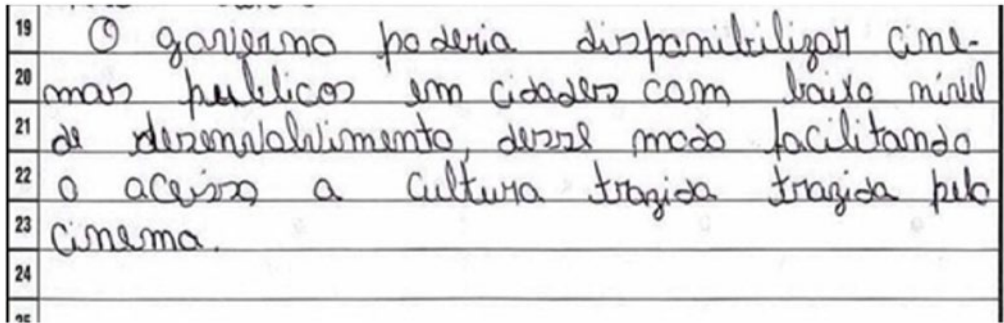 19 O governo poderia disponibilizar cine-
20 mas publicos em cidades com baixo nivel
21 de desenvolvimento, desse modo facilitando
22 o acesso a cultura trazida trazida pelo
23 cinema.
24
25